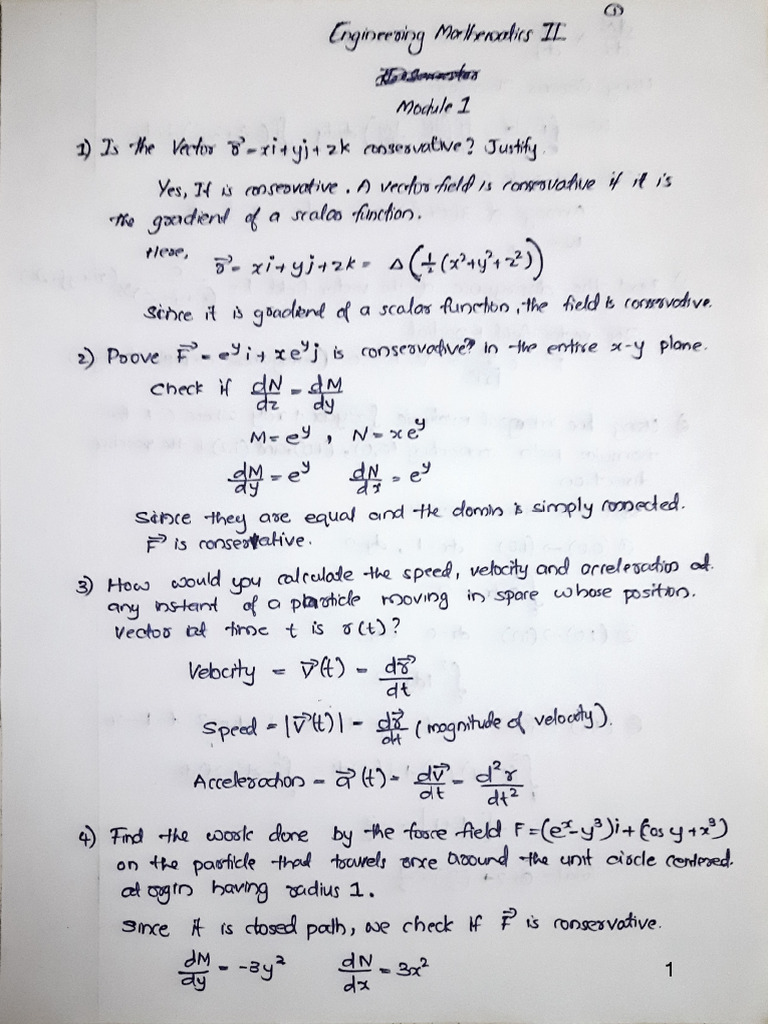 1
Engineering Mathematics II
Module 1
1) Is the Vector r⃗ = xi+yj+zk conservative? Justify.
Yes, It is conservative. A vector field is conservative if it is
the gradient of a scalar function.
Here, r⃗ = xi+yj+zk = Δ(½(x²+y²+z²))
Since it is gradient of a scalar function, the field is conservative.
2) Proove F⃗ = e^y i + xe^y j is conservative? in the entire x-y plane.
Check if dN/dz = dM/dy
M = e^y , N = xe^y
dM/dy = e^y dN/dx = e^y
Since they are equal and the domin is simply connected.
F⃗ is conservative.
3) How would you calculate the speed, velocity and acceleration at
any instant of a particle moving in space whose position.
Vector at time t is r(t)?
Velocity = v⃗(t) = dr⃗/dt
Speed = |v⃗(t)| = dr⃗/dt (magnitude of velocity).
Acceleration = a⃗(t) = dv⃗/dt = d²r/dt²
4) Find the work done by the force field F=(e^x-y³)i+(cos y+x³)
on the particle that travels once around the unit circle centered.
at orgin having radius 1.
Since it is closed path, we check if F⃗ is conservative.
dM/dy = -3y² dN/dx = 3x²
1